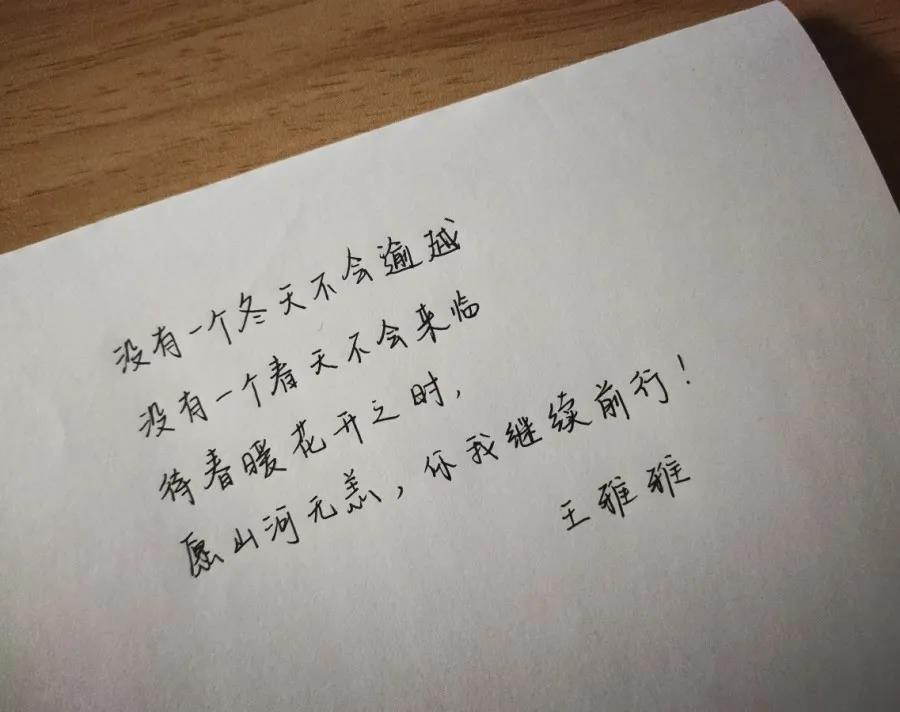 没有一个冬天不会逾越
没有一个春天不会来临
待春暖花开之时,
愿山河无恙,你我继续前行!
王雅雅